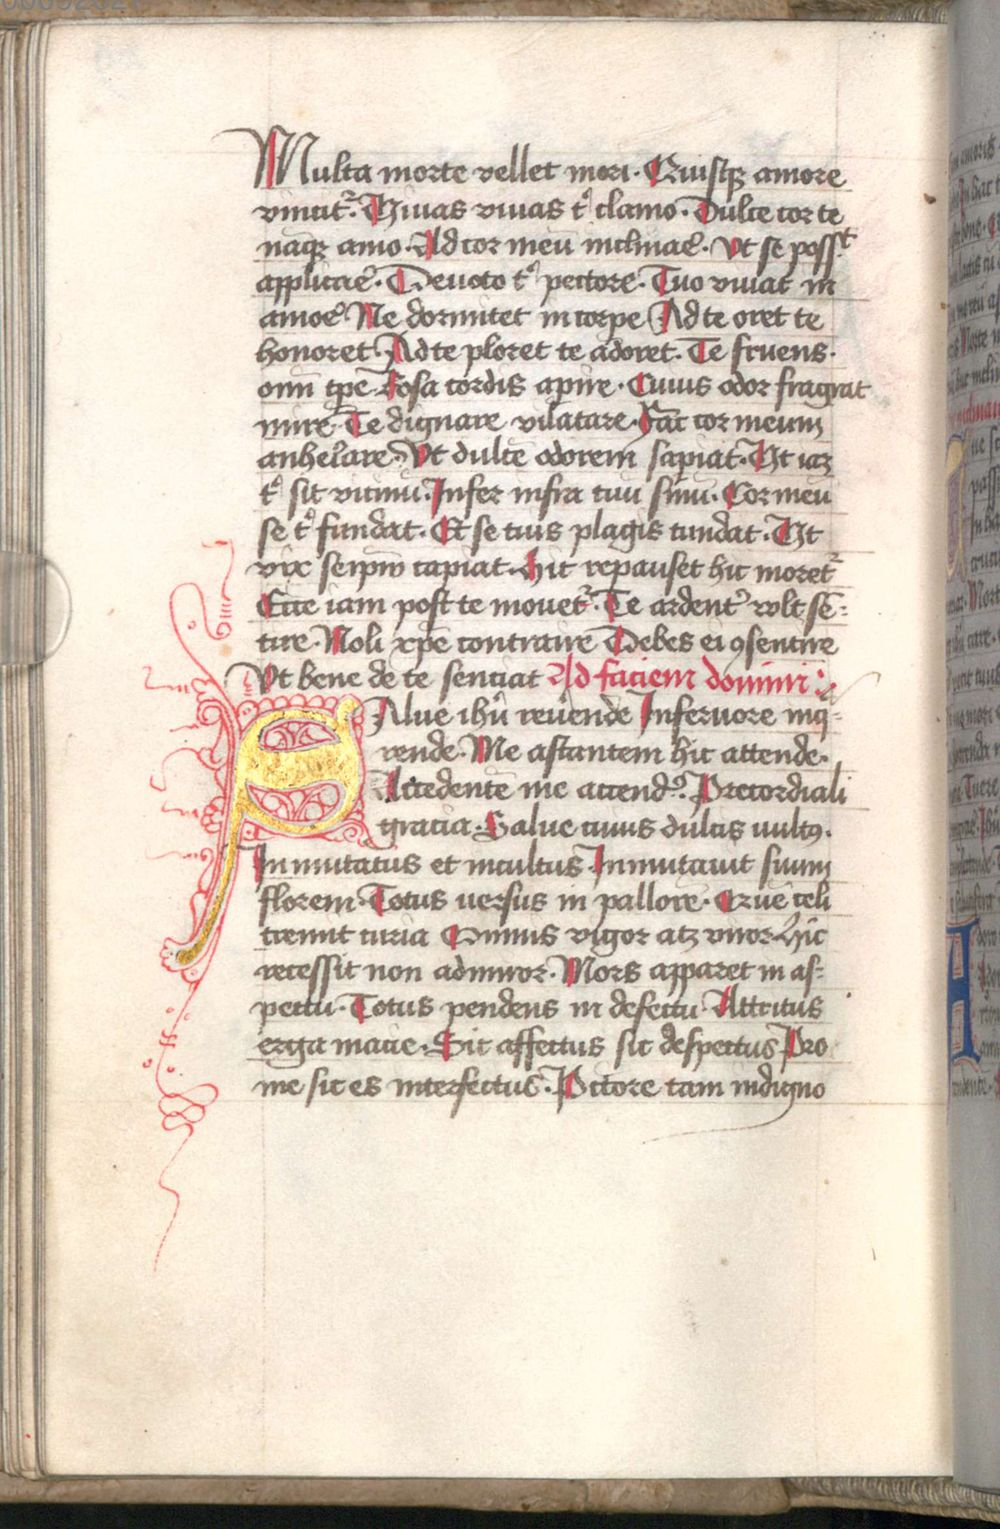 Multa morte vellet mori. Quisq3 amore
vincit᷑. Viuas viuas tⁱ clamo. Dulce cor te
naq3 amo. Ad cor meū inclinaē. Vt se possᵗ
applicaē. Deuoto tⁱ pectore. Tuo viuat in
amoē. Ne dormitet in torpe Ad te oret te
honoret. Ad te ploret te adoret. Te fruens.
om̄i tp̄e. Rosa cordis aperire. Cuius odor fragrat
mire. Te dignare dilatare. Fac cor meum
anhelare. Vt dulcē odorem sapiat. Vt iaꝫ
tⁱ sit vicinū. Infer infra tuū sinū. Cor meū
se tⁱ fundat. Et se tuis plagis tundat. Vt
vix seip̄m capiat. Hic repauset hic moret᷑
Ecce iam post te mouet᷑. Te ardentʳ vult sē-
tire. Noli xp̄e contraire Debes ei ꝯsentire
Vt bene de te sentiat Ad faciem domini
Salue ihū reuēende In feruore inq̄-
rende. Me astantem hic attende.
Accedentē me accendᵉ. Precordiali
gracia. Salue cuius dulcis uultꝰ.
Inmutatus et incultus. Inmutauit suum
florem. Totus uersus in pallorē. Crue celi
tremit curia Omnis vigor atq3 viror Hic
recessit non admiror. Mors apparet in as-
pectu. Totus pendens in defectu Attritus
erga macie. Sic affectus sic despectus Pro
me sic es interfectus. Pctore tam indigno